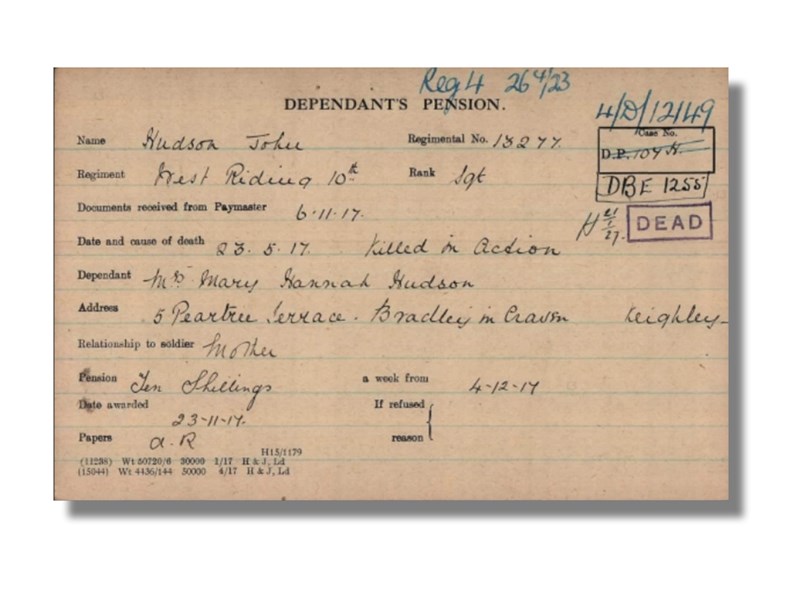 Reg 4 26/4/23
DEPENDANT'S PENSION.
4/D/12149
Name Hudson John Regimental No. 13277.
Case No.
D.P. 104 H.
Regiment West Riding 10th Rank Sgt
DBE 1255
Documents received from Paymaster 6.11.17.
DEAD
Date and cause of death 23.5.17. Killed in Action
Dependant Mrs Mary Hannah Hudson
Address 5 Peartree Terrace. Bradley in Craven Keighley
Relationship to soldier Mother
Pension Ten Shillings a week from 4-12-17
Date awarded 23-11-17. If refused
Papers a.R reason
H15/1179
(11238) Wt 50720/6 30000 1/17 H & J, Ld
(15044) Wt 4436/144 50000 4/17 H & J, Ld